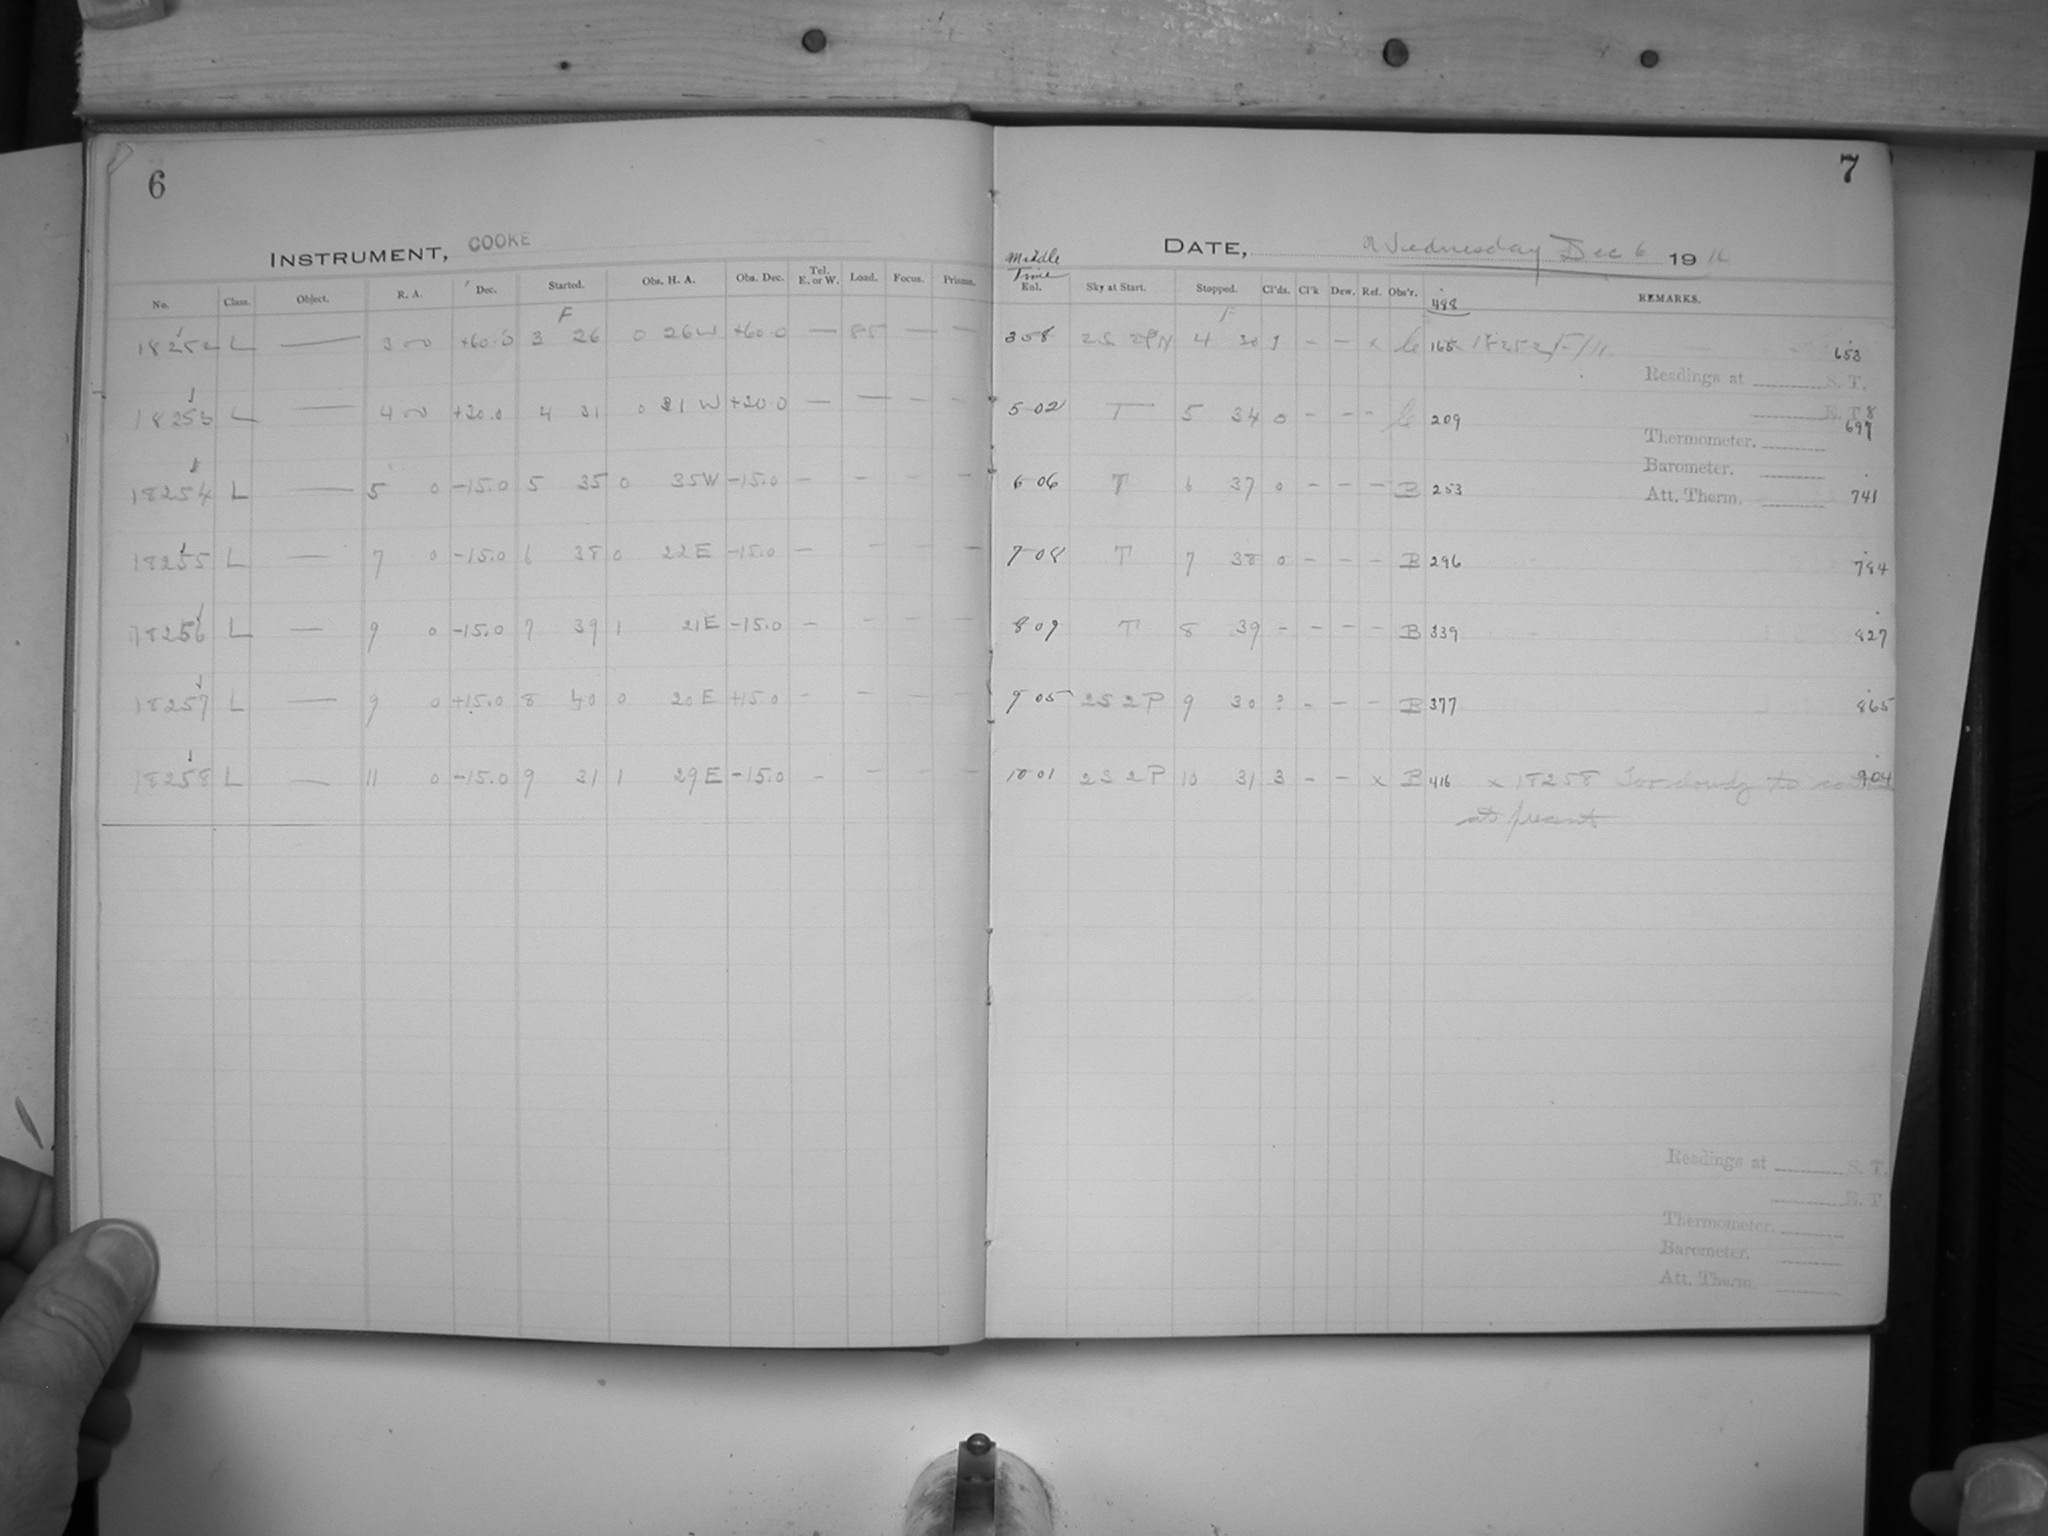 6
INSTRUMENT, COOKE
No. Class. Object. R. A. Dec. Started. Obs. H. A. Obs. Dec. Tel. E. or W. Load. Focus. Prisms.
F
18252 L — 3 00 +60.0 3 26 0 26 W +60.0 — 85 — —
18253 L — 4 00 +30.0 4 31 0 31 W +30.0 — — — —
18254 L — 5 0 -15.0 5 35 0 35 W -15.0 — — — —
18255 L — 7 0 -15.0 6 38 0 22 E -15.0 — — — —
18256 L — 9 0 -15.0 7 39 1 21 E -15.0 — — — —
18257 L — 9 0 +15.0 8 40 0 20 E +15.0 — — — —
18258 L — 11 0 -15.0 9 31 1 29 E -15.0 — — — —
7
DATE, Wednesday Dec 6 1916
Middle Time
Enl. Sky at Start. Stopped. Cl'ds. Cl'k Dew. Ref. Obs'r. REMARKS.
488
F
3 58 2S 4 30 1 — — x 165 18252 653
Readings at S. T.
5 02 T 5 34 0 — — — 209 697
R. T.
Thermometer.
Barometer.
6 06 T 6 37 0 — — — B 253 741
Att. Therm.
7 08 T 7 38 0 — — — B 296 784
8 09 T 8 39 — — — — B 339 827
9 05 2S 2P 9 30 ? — — — B 377 865
10 01 2S 2P 10 31 3 — — x B 416 x 18258 Too cloudy to 904
at present
Readings at S. T.
R. T.
Thermometer.
Barometer.
Att. Therm.